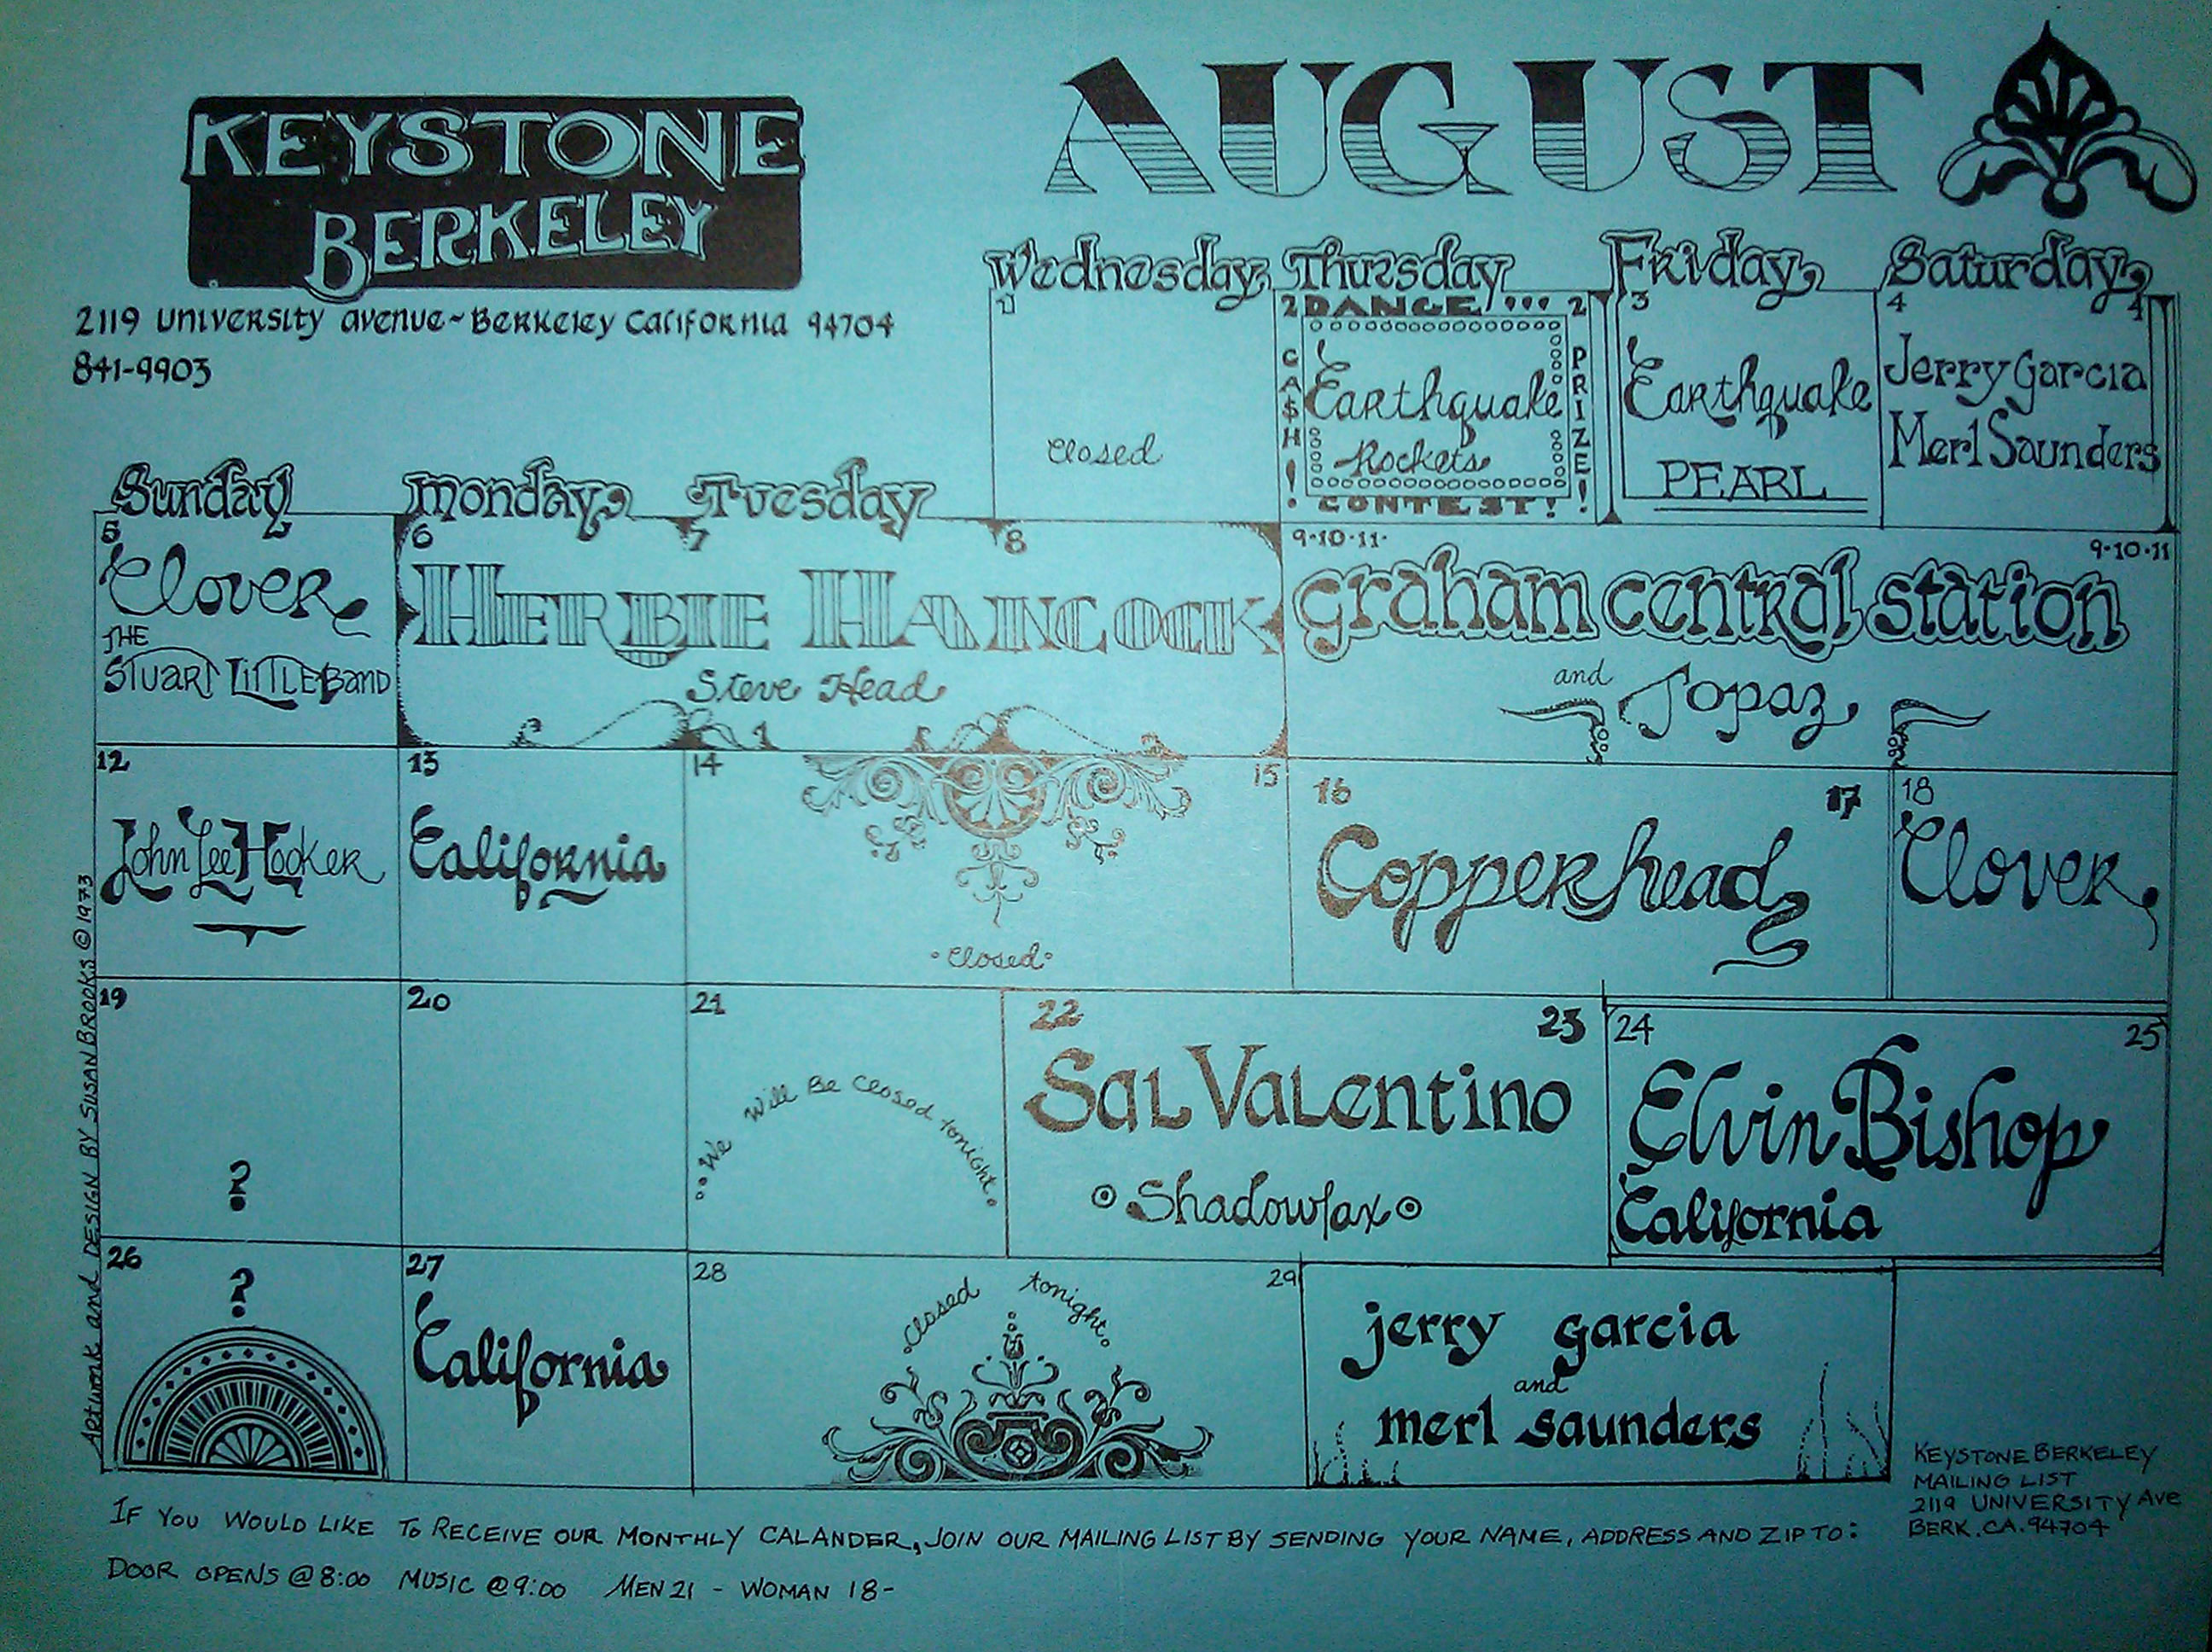 KEYSTONE
BERKELEY
2119 University avenue~Berkeley California 94704
841-9903
AUGUST
Wednesday Thursday Friday Saturday
1
Closed
2 DANCE !!! 2
CA$H!
PRIZE!
Earthquake
Rockets
CONTEST!
3
Earthquake
PEARL
4 4
Jerry Garcia
Merl Saunders
Sunday Monday Tuesday
5
Clover
THE
STUART LITTLE BAND
6 7 8
HERBIE HANCOCK
Steve Head
9·10·11· 9·10·11
graham central station
and
Topaz
12
John Lee Hooker
13
California
14 15
·Closed·
16 17
Copperhead
18
Clover
19
?
20
21
We Will Be Closed tonight
22 23
Sal Valentino
Shadowfax
24 25
Elvin Bishop
California
26
?
27
California
28 29
Closed tonight
jerry garcia
and
merl saunders
Artwork and DESIGN BY SUSAN BROOKS © 1973
KEYSTONE BERKELEY
MAILING LIST
2119 UNIVERSITY AVE
BERK. CA. 94704
IF YOU WOULD LIKE TO RECEIVE OUR MONTHLY CALANDER, JOIN OUR MAILING LIST BY SENDING YOUR NAME, ADDRESS AND ZIP TO:
DOOR OPENS @ 8:00 MUSIC @ 9:00 MEN 21 - WOMAN 18-